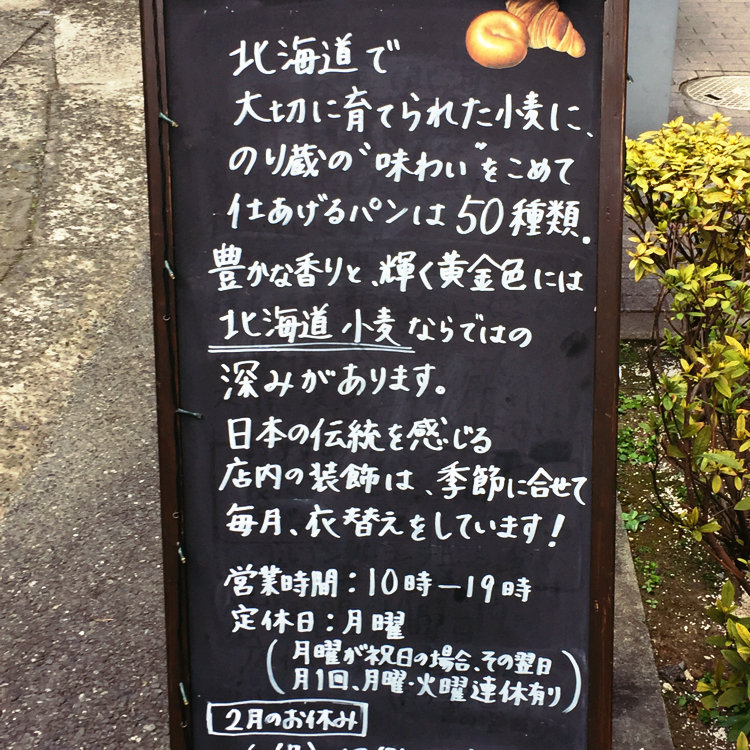 北海道で
大切に育てられた小麦に、
のり蔵の"味わい"をこめて
仕あげるパンは50種類。
豊かな香りと、輝く黄金色には
北海道小麦ならではの
深みがあります。
日本の伝統を感じる
店内の装飾は、季節に合せて
毎月、衣替えをしています!
営業時間:10時—19時
定休日:月曜
(月曜が祝日の場合、その翌日
月1回、月曜・火曜連休有り)
2月のお休み